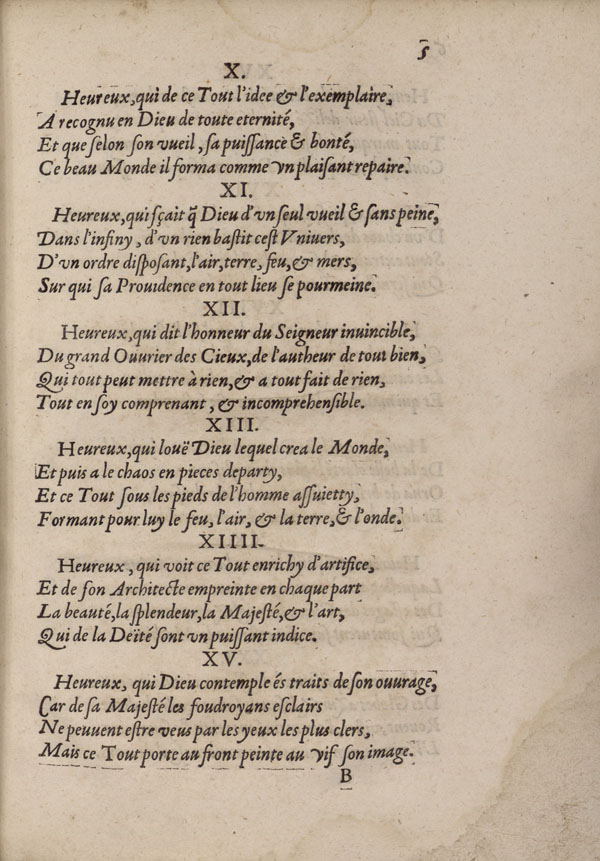 5
X.
Heureux, qui de ce Tout l'idee & l'exemplaire,
A recognu en Dieu de toute eternité,
Et que ſelon ſon vueil, ſa puiſſance & bonté,
Ce beau Monde il forma comme vn plaiſant repaire.
XI.
Heureux, qui ſçait q̃ Dieu d'vn ſeul vueil & ſans peine,
Dans l'infiny, d'vn rien baſtit ceſt Vniuers,
D'vn ordre diſpoſant, l'air, terre, feu, & mers,
Sur qui ſa Prouidence en tout lieu ſe pourmeine.
XII.
Heureux, qui dit l'honneur du Seigneur inuincible,
Du grand Ouurier des Cieux, de l'autheur de tout bien,
Qui tout peut mettre à rien, & a tout fait de rien,
Tout en ſoy comprenant, & incomprehenſible.
XIII.
Heureux, qui louë Dieu lequel crea le Monde,
Et puis a le chaos en pieces departy,
Et ce Tout ſous les pieds de l'homme aſſuietty,
Formant pour luy le feu, l'air, & la terre, & l'onde.
XIIII.
Heureux, qui voit ce Tout enrichy d'artifice,
Et de ſon Architecte empreinte en chaque part
La beauté, la ſplendeur, la Majeſté, & l'art,
Qui de la Deïté ſont vn puiſſant indice.
XV.
Heureux, qui Dieu contemple és traits de ſon ouurage,
Car de ſa Majeſté les foudroyans eſclairs
Ne peuuent eſtre veus par les yeux les plus clers,
Mais ce Tout porte au front peinte au vif ſon image.
B